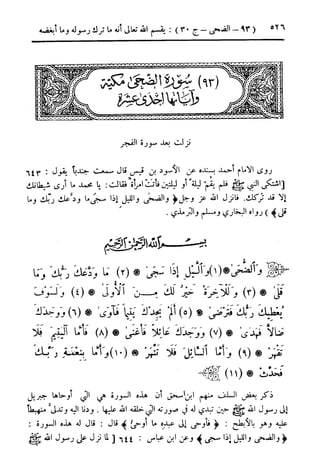 ٥٢٦ (٩٣ - الضحى - ج ٣٠) : يقسم الله تعالى أنه ما ترك رسوله وما أبغضه
(٩٣) سورة الضحى مكية
وآياتها إحدى عشرة
نزلت بعد سورة الفجر
روى الامام أحمد بسنده عن الأسود بن قيس قال سمعت جندباً يقول : ٦٤٣
[اشتكى النبي ﷺ فلم يقم ليلة أو ليلتين فأتت امرأة فقالت: يا محمد ما أرى شيطانك
إلا قد تركك. فأنزل الله عز وجل ﴿ والضحى والليل إذا سجى ما ودعك ربك وما
قلى ﴾ ) رواه البخاري ومسلم والترمذي .
بسم الله الرحمن الرحيم
والضحى * (١) والليل إذا سجى * (٢) ما ودعك ربك وما
قلى * (٣) وللآخرة خير لك من الأولى * (٤) ولسوف
يعطيك ربك فترضى * (٥) ألم يجدك يتيماً فآوى * (٦) ووجدك
ضالاً فهدى * (٧) ووجدك عائلاً فأغنى * (٨) فأما اليتيم فلا
تقهر * (٩) وأما السائل فلا تنهر * (١٠) وأما بنعمة ربك
فحدث * (١١)
ذكر بعض السلف منهم ابن اسحق أن هذه السورة هي التي أوحاها جبريل
إلى رسول الله ﷺ حين تبدى له في صورته التي خلقه الله عليها . ودنا اليه وتدلى منهبطاً
عليه وهو بالأبطح : ﴿ فأوحى إلى عبده ما أوحى ﴾ قال : قال له هذه السورة :
﴿ والضحى والليل إذا سجى ﴾ وعن ابن عباس : ٦٤٤ [لما نزل على رسول الله ﷺ